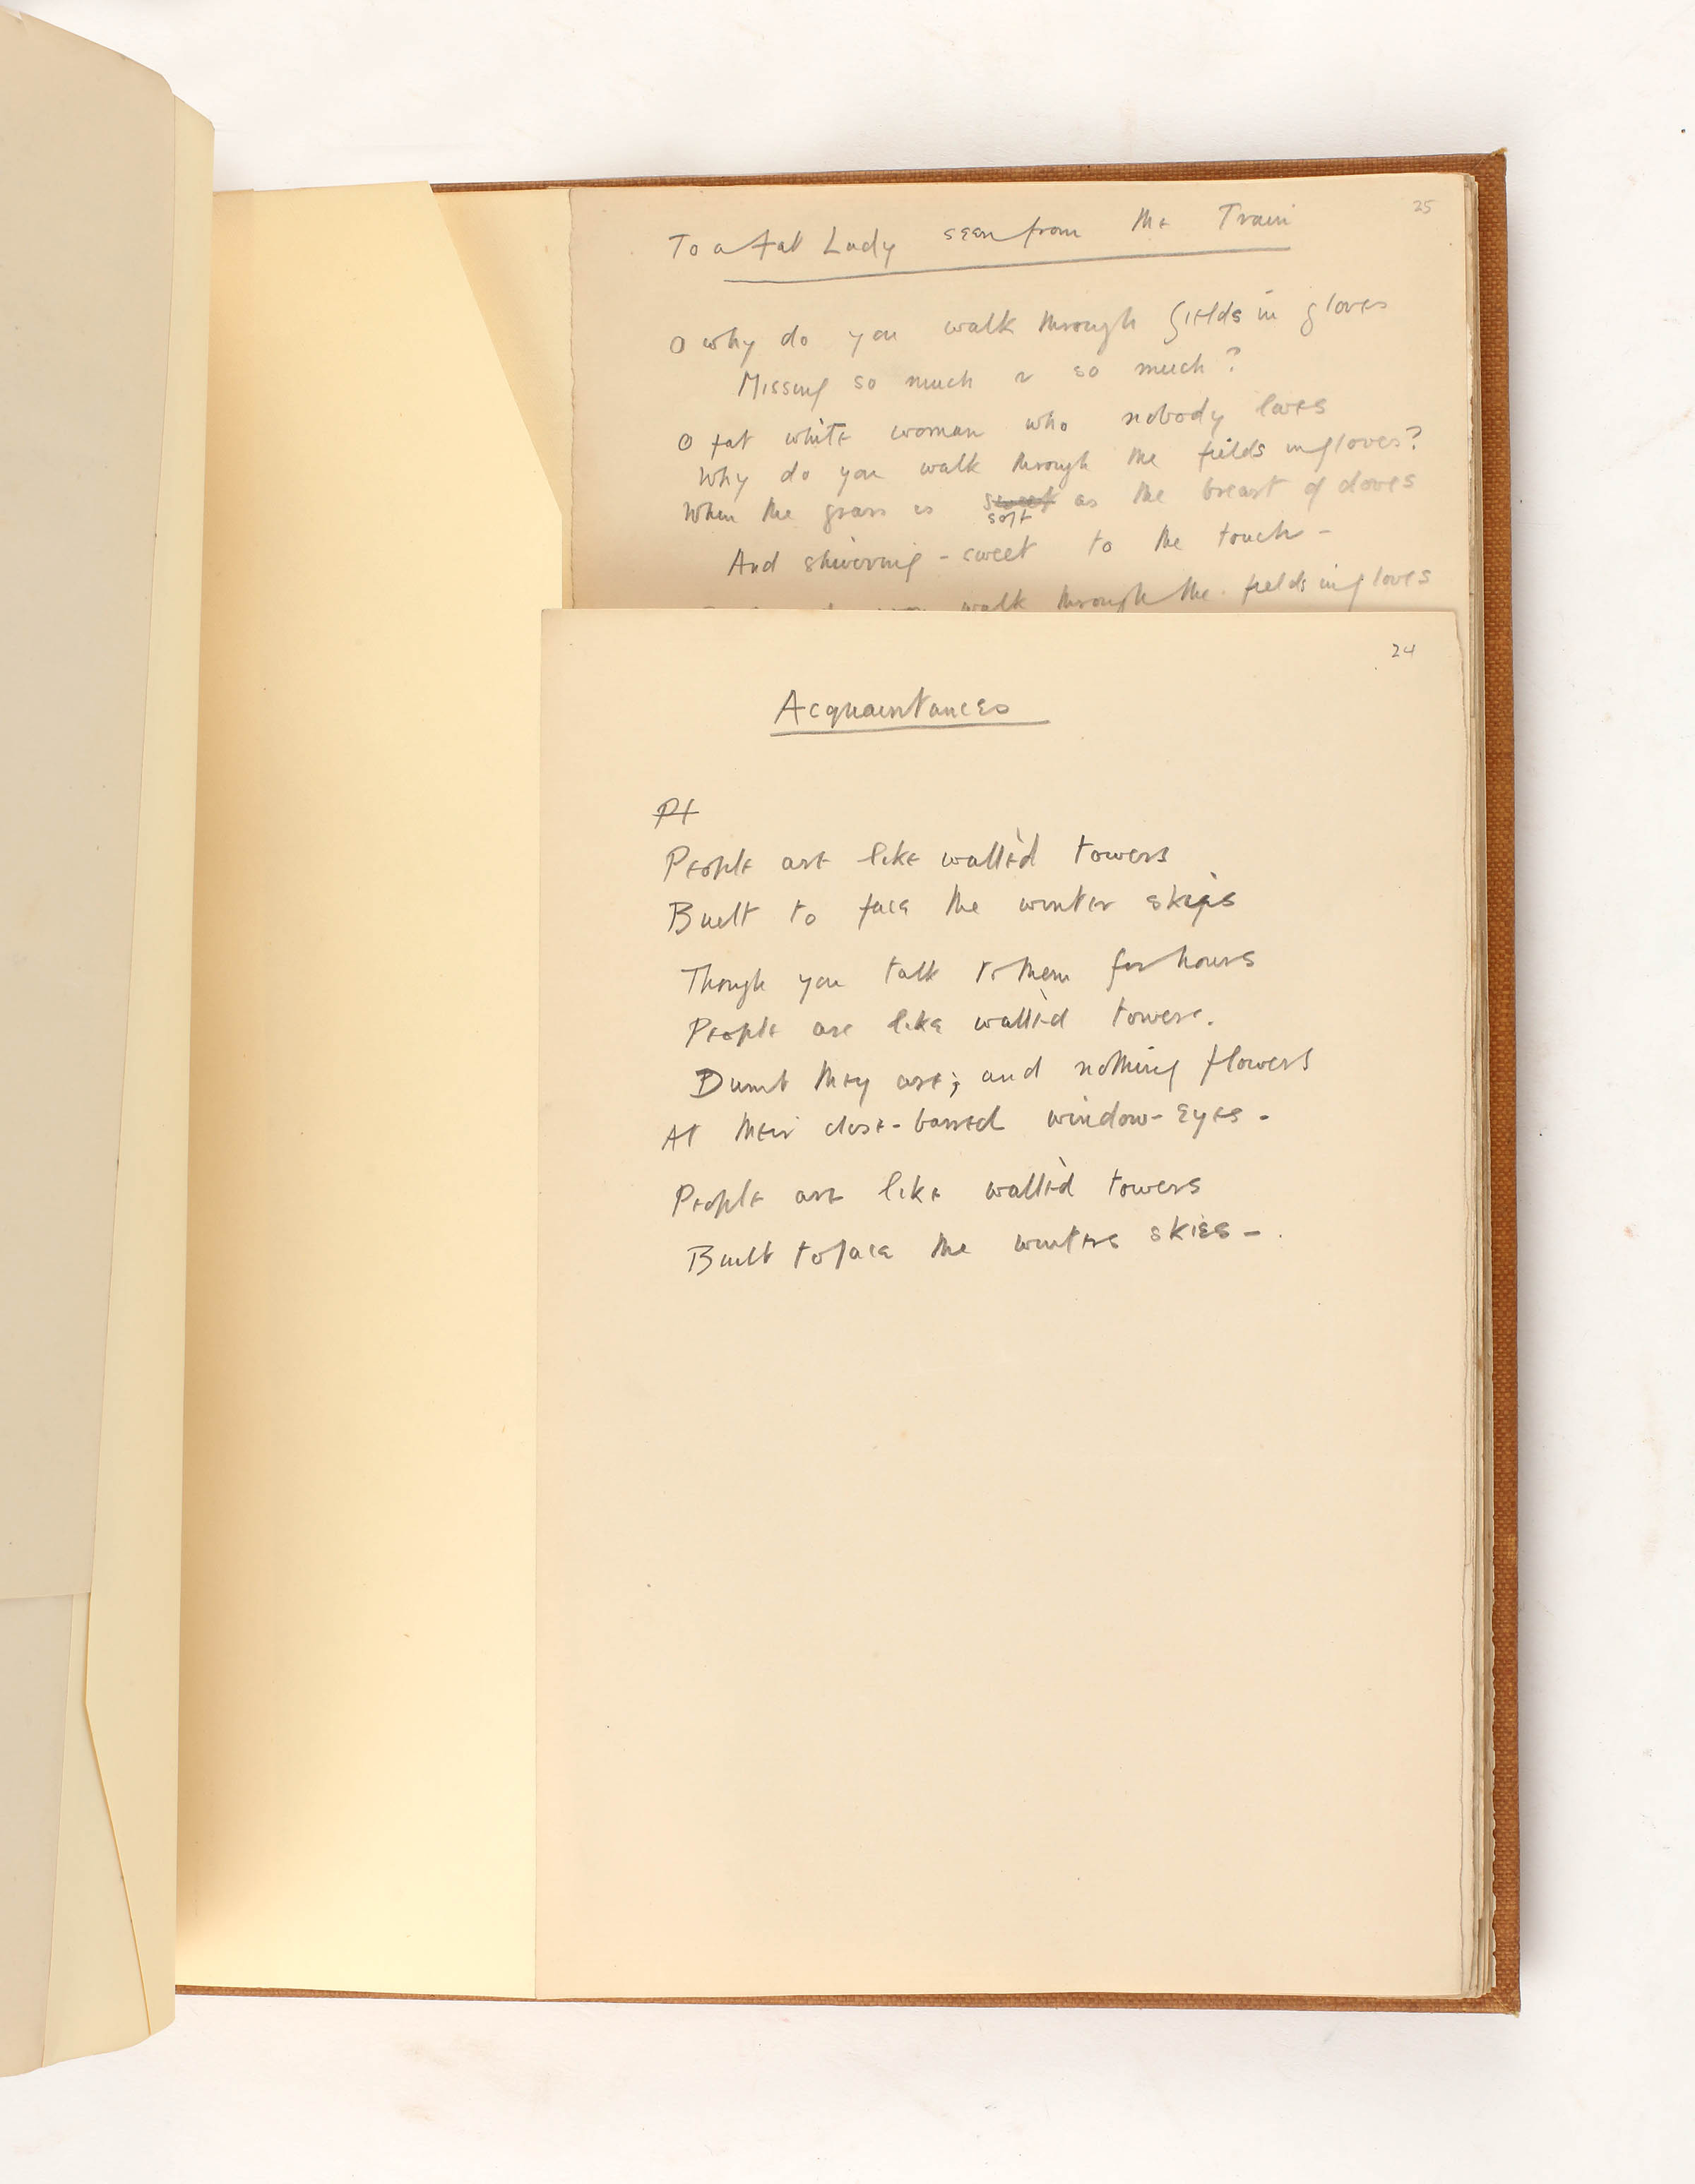 25
To a fat Lady seen from the Train
O why do you walk through fields in gloves
Missing so much & so much?
O fat white woman who nobody loves
Why do you walk through the fields in gloves?
When the grass is sweet as the breast of doves
soft
And shivering-sweet to the touch -
walk through the fields in gloves
24
Acquaintances
Pe
People are like wallèd towers
Built to face the winter skies
Though you talk to them for hours
People are like wallèd towers.
Dumb they are; and nothing flowers
At their close-barred window-eyes -
People are like wallèd towers
Built to face the winters skies -.